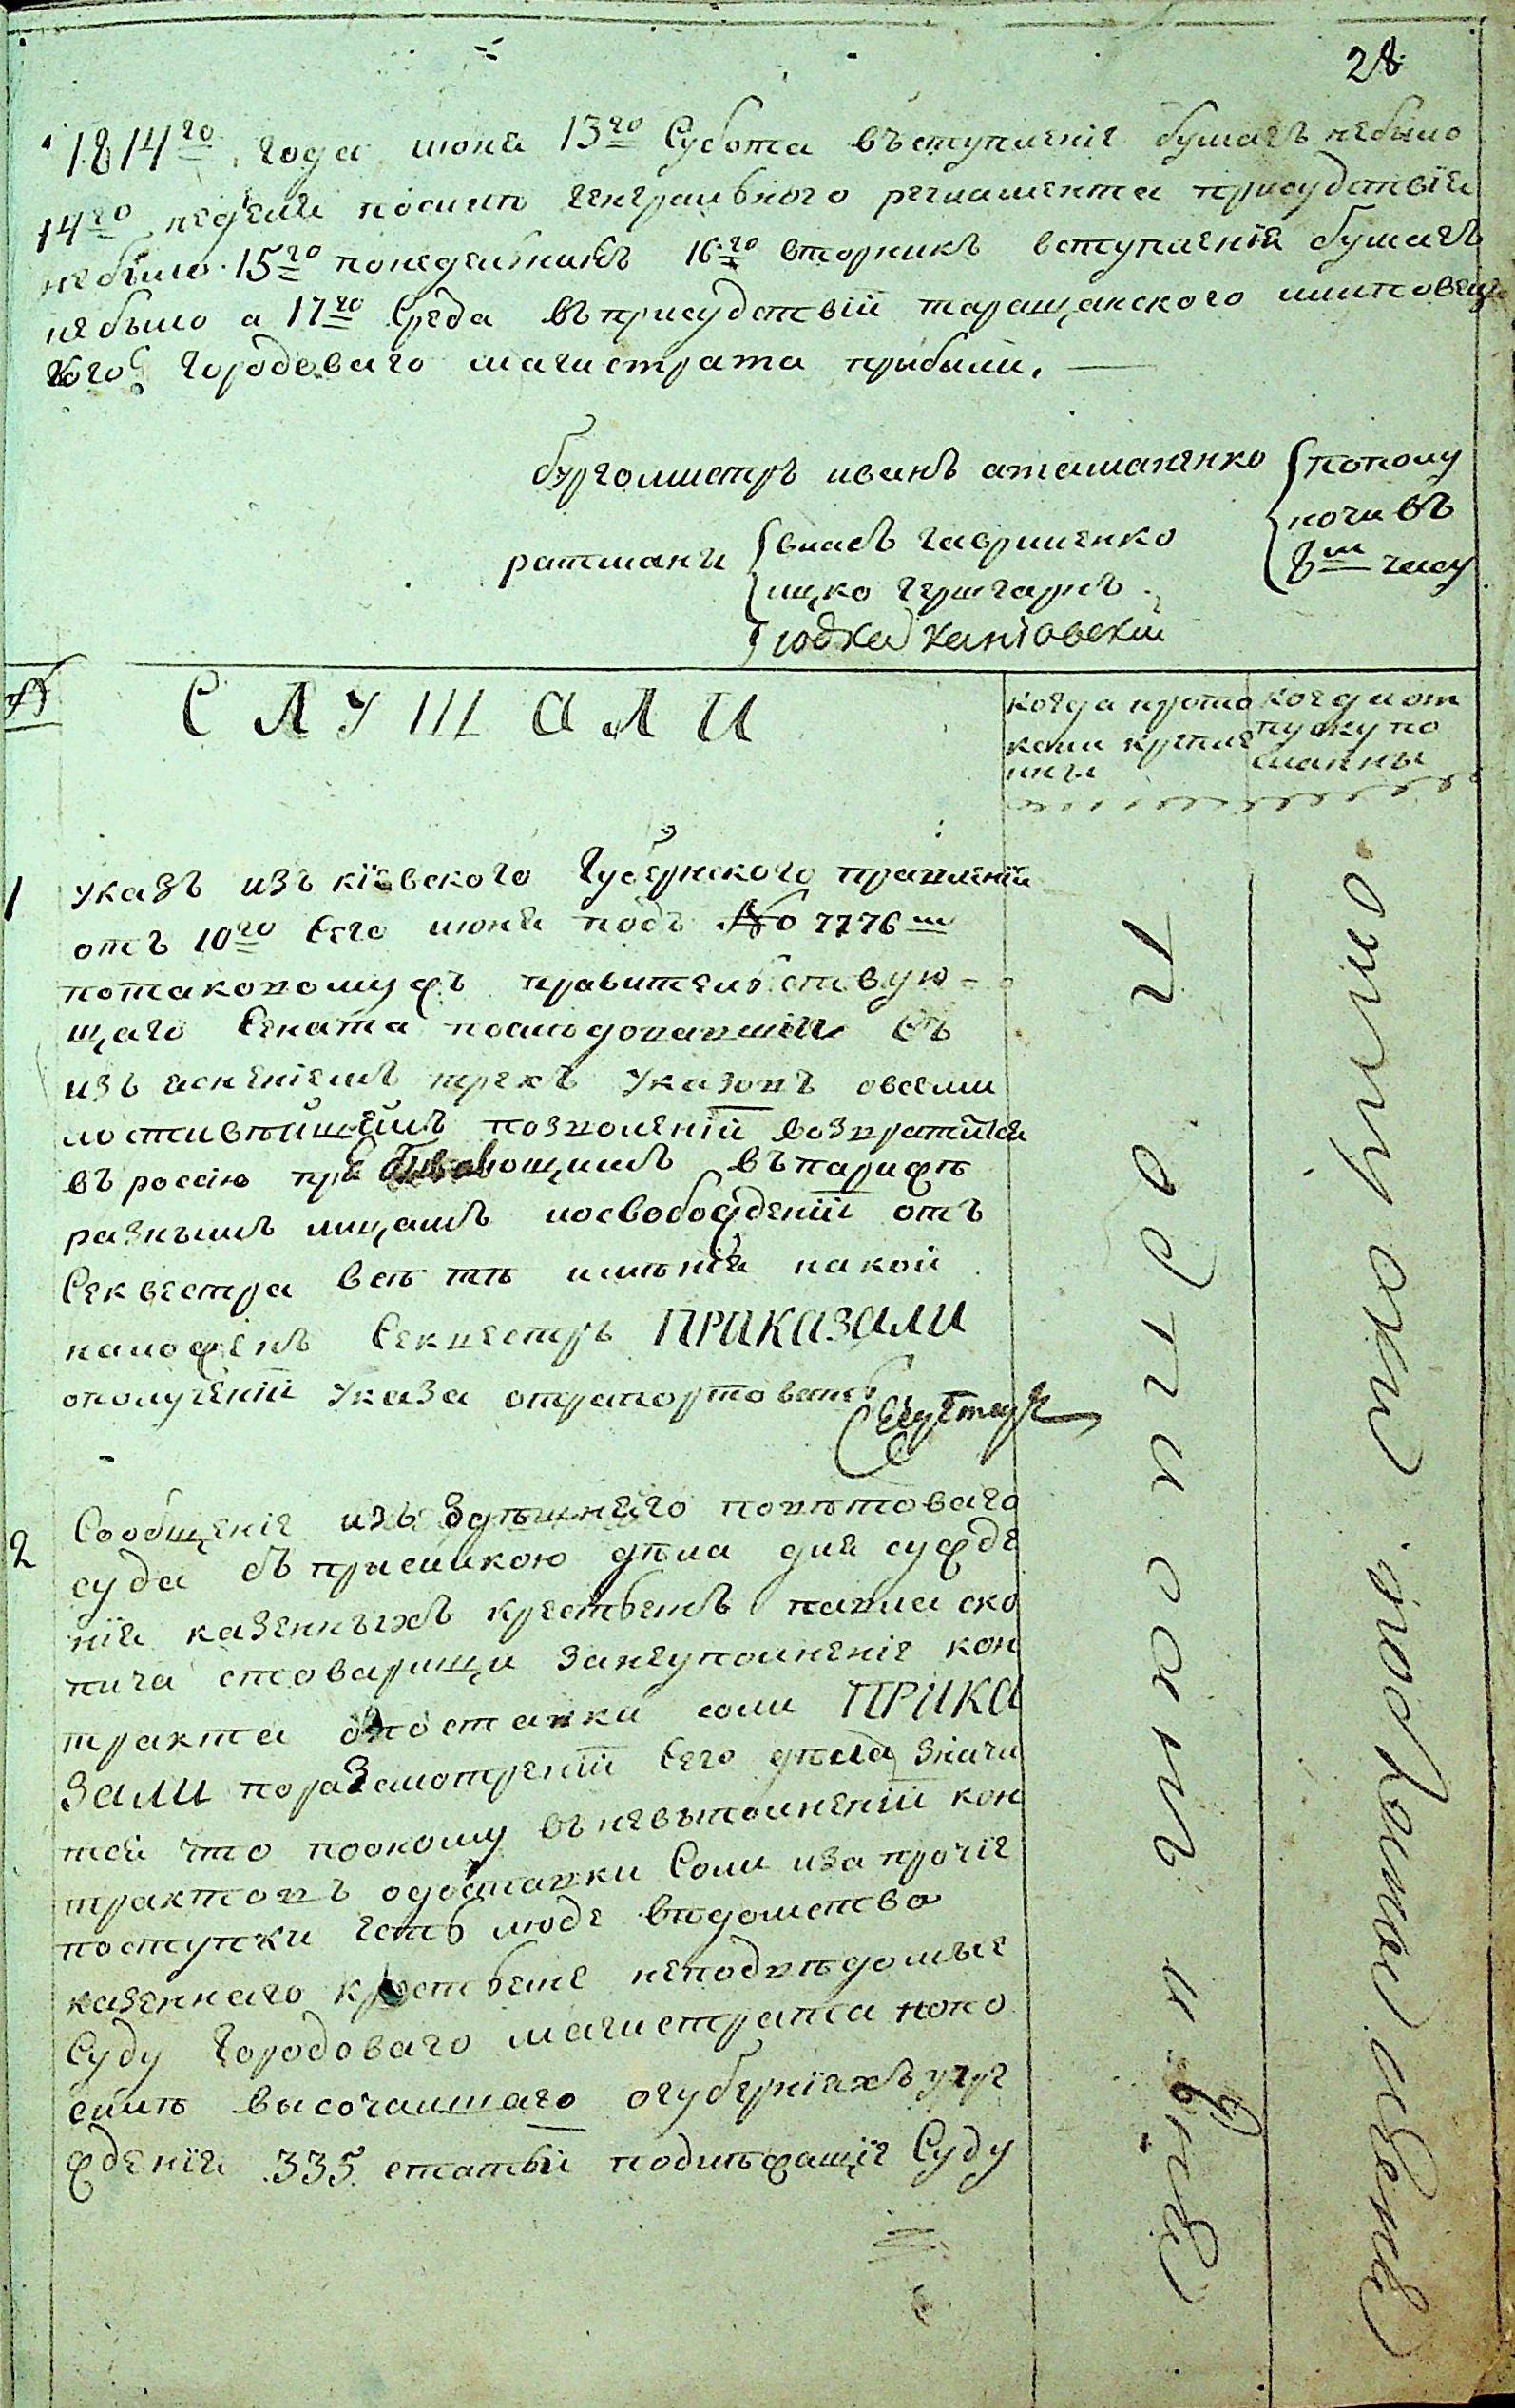 28
1814го года июня 13го Субота въступленіе бумагъ небыло
14го неделя посилѣ генерального регламента присудствія
небыло 15го понедельникъ 16го вторникъ вступленія бумагъ
небыло а 17го Среда въприсудствій таращанского
кого городоваго магистрата прыбыли.
бургомистръ иванъ атаманенко
ратманы
власъ гавриленко
ицко гершгарнъ
юдка каніовскій
пополу
ночи въ
8м часу
№
СЛУШАЛИ
когда прото
колы крепле
ны
когда от
пуску по
сланны
1
указъ изъ кіевского Губернского правленія
отъ 10го Сего июня подъ No 7776м
потаковомужъ правительствую-
щаго Сената последовавшій Съ
изъясненіемъ трехъ Указовъ овсеми
лостивѣйшемъ позволеній возвратится
въ россію пребывающимъ въпарижѣ
разнымъ лицамъ иосвобожденій отъ
Секвестра всѣ тѣ имѣнія накои
наложенъ Секвестръ ПРИКАЗАЛИ
ополученій Указа отрапортовать
2
Сообщеніе изъ Здѣшнего повѣтоваго
суда съ прысилкою дѣла для сужде
нія казенныхъ крестьянъ павла ско
пича стоварищи занеуполненіе кон
тракта опоставки соли ПРИКА
ЗАЛИ поразсмотреній Сего дѣла Значи
тся что поономy въневыполненій кон
трактовъ одоставки Соли иза прочіе
поступки есть люде вѣдомства
казеннаго крестьяне неподвѣдомые
Суду городоваго магистрата нопо
силѣ высочаишаго огуберніяхъ учре
жденія 335 статьи подлѣжащіе Суду